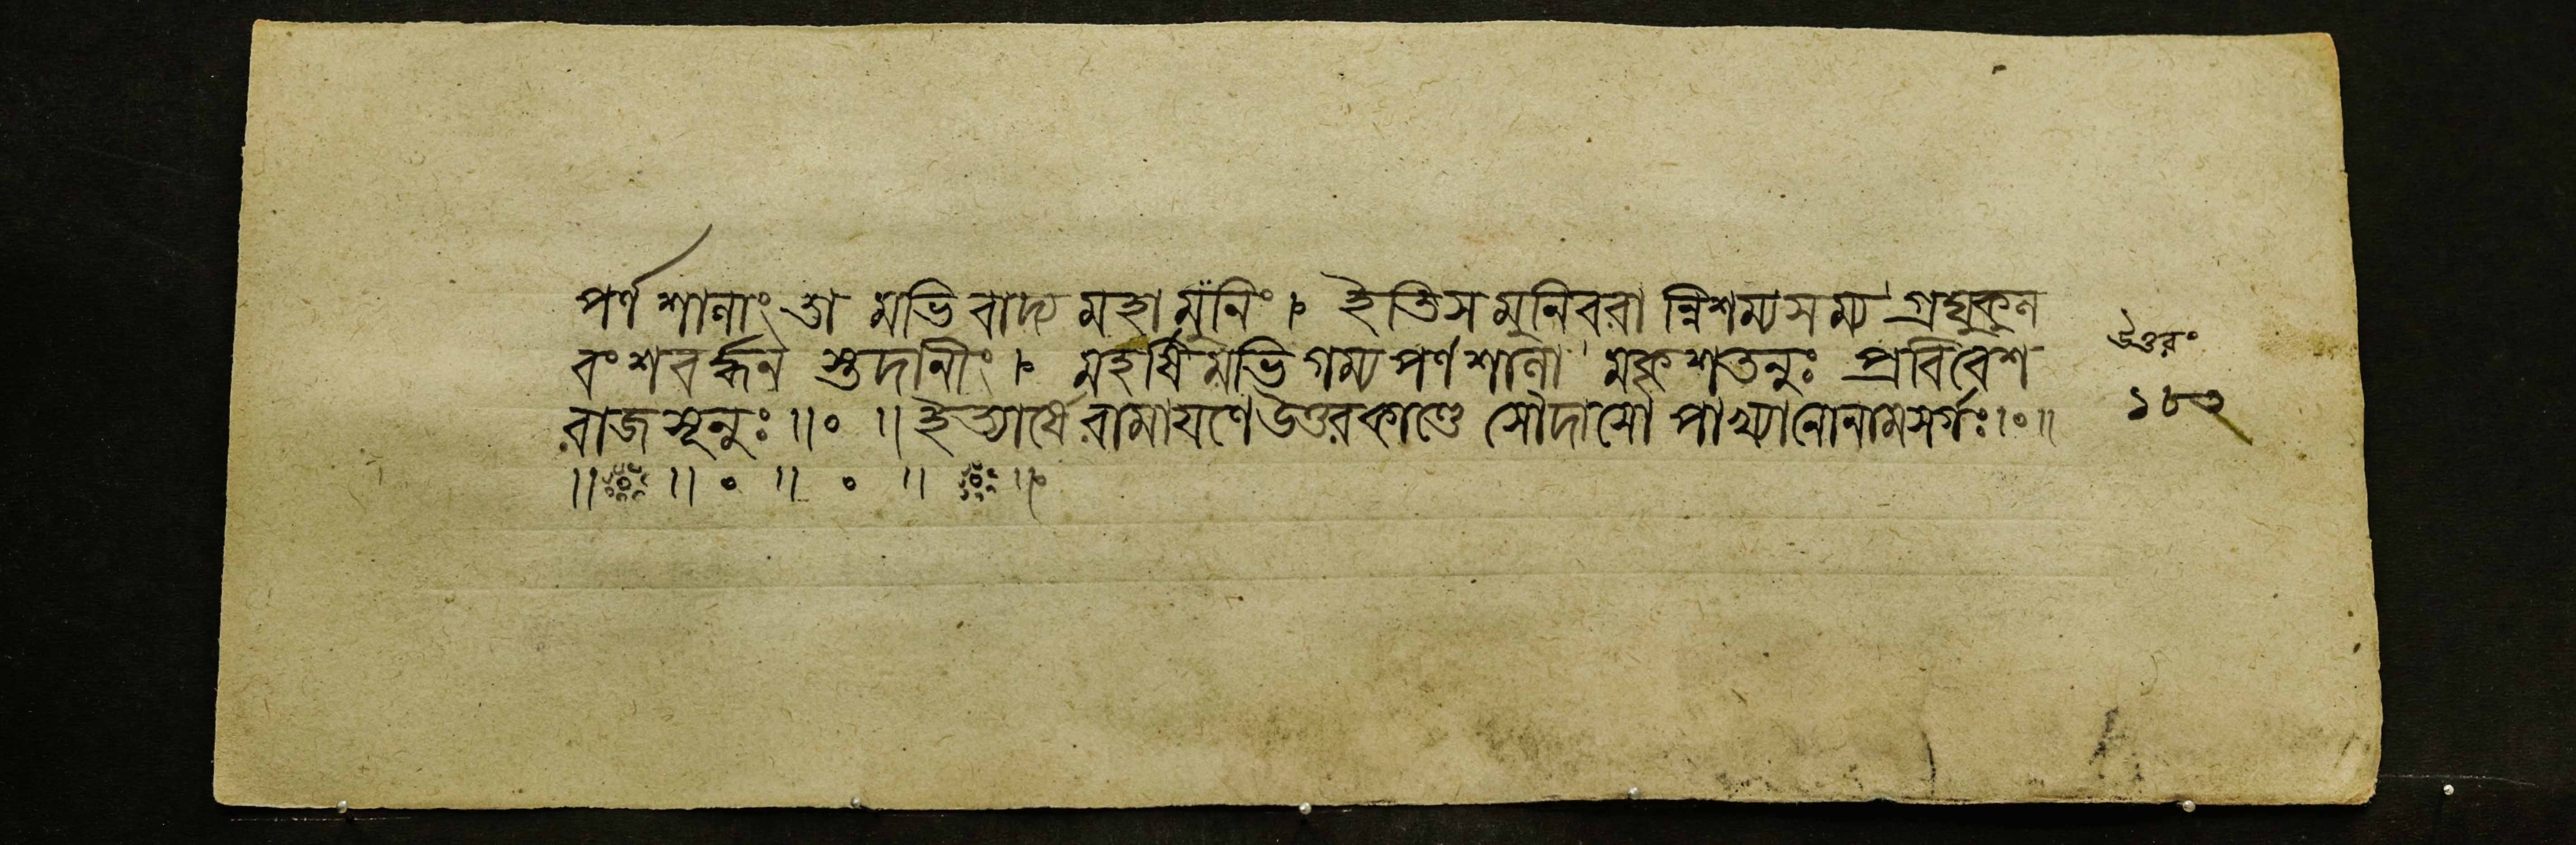 পর্ণশালাং তা মভিবাদ্য মহামুনিং। ইতিস মুনিবরা ন্নিশম্যসম্য গ্রঘুকুল
বংশবর্দ্ধন স্তুদানীং। মহর্ষিমভিগম্যপর্ণশালা মকৃশতনুঃ প্রবিবেশ
রাজসূনুঃ॥০॥ইত্যার্ষেরামায়ণেউত্তরকাণ্ডে সৌদাসো পাখ্যানোনামসর্গঃ।০॥
॥ ॥ ० ॥ ० ॥ ॥
উত্তরং
১৮২